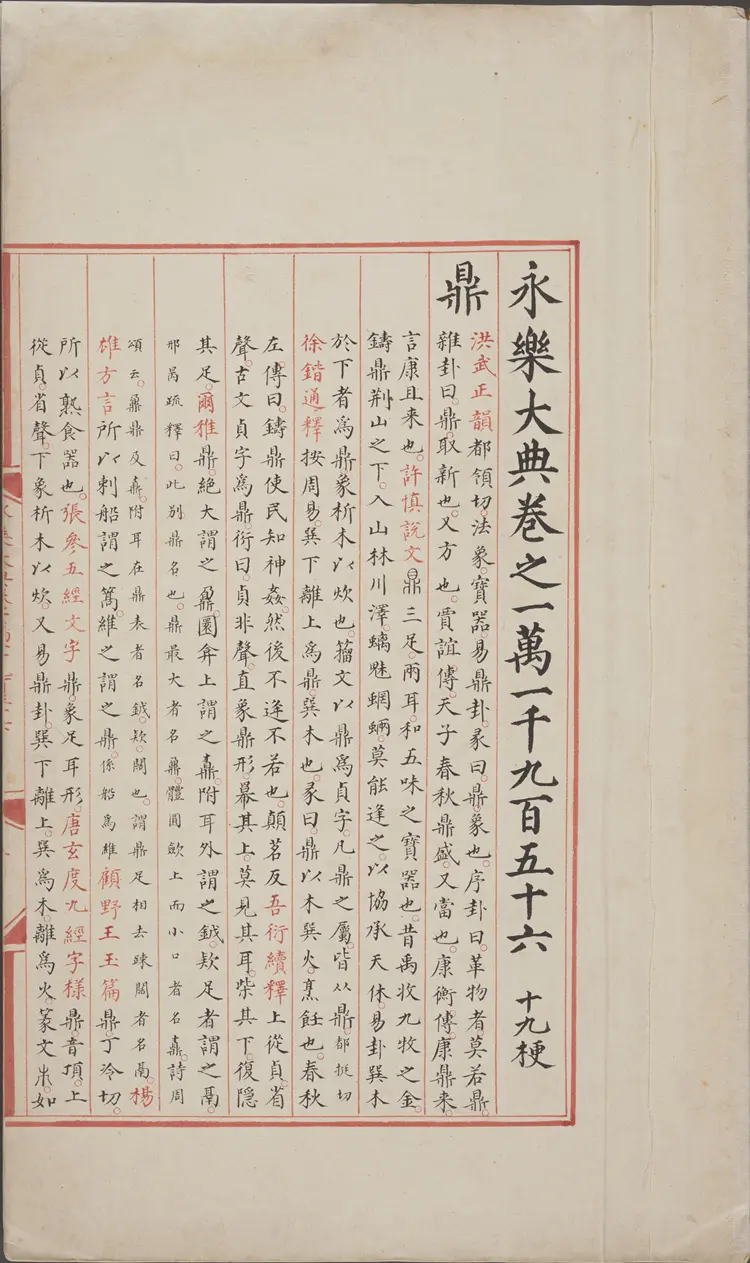 永樂大典卷之一萬一千九百五十六 十九梗
鼎
洪武正韻都領切。法象。寶器。易鼎卦。彖曰。鼎。象也。序卦曰。革物者莫若鼎。
雜卦曰。鼎。取新也。又方也。賈誼傳。天子春秋鼎盛。又當也。康衡傳。康鼎來。
言康且來也。許慎說文鼎三足。兩耳。和五味之寶器也。昔禹收九牧之金。
鑄鼎荆山之下。入山林川澤。螭魅蝄蜽。莫能逢之。以協承天休。易卦巽木
於下者為鼎。象析木以炊也。籀文以鼎為貞字。凡鼎之屬。皆从鼎。都挺切
徐鍇通釋按周易。巽下離上為鼎。巽木也。彖曰。鼎以木巽火。烹飪也。春秋
左傳曰。鑄鼎使民知神姦。然後不逢不若也。顛茗反吾衍續釋上從貞。省
聲。古文貞字為鼎。衍曰。貞非聲。直象鼎形。冪其上。莫見其耳。柴其下。復隱
其足。爾雅鼎。絕大謂之鼐。圜弇上謂之鼒。附耳外謂之釴。款足者謂之鬲。
邢昺疏釋曰。此別鼎名也。鼎最大者名鼐。體圓歛上而小口者名鼒。詩周
頌云。鼐鼎及鼒。附耳在鼎表者名釴。款。闊也。謂鼎足相去疎闊者名鬲。楊
雄方言所以刺船謂之篙。維之謂之鼎。係船為維顧野王玉篇鼎。丁冷切。
所以熟食器也。張參五經文字鼎。象足耳形。唐玄度九經字樣鼎。音頂。上
從貞。省聲。下象析木以炊。又易鼎卦。巽下離上。巽為木。離為火。篆文如